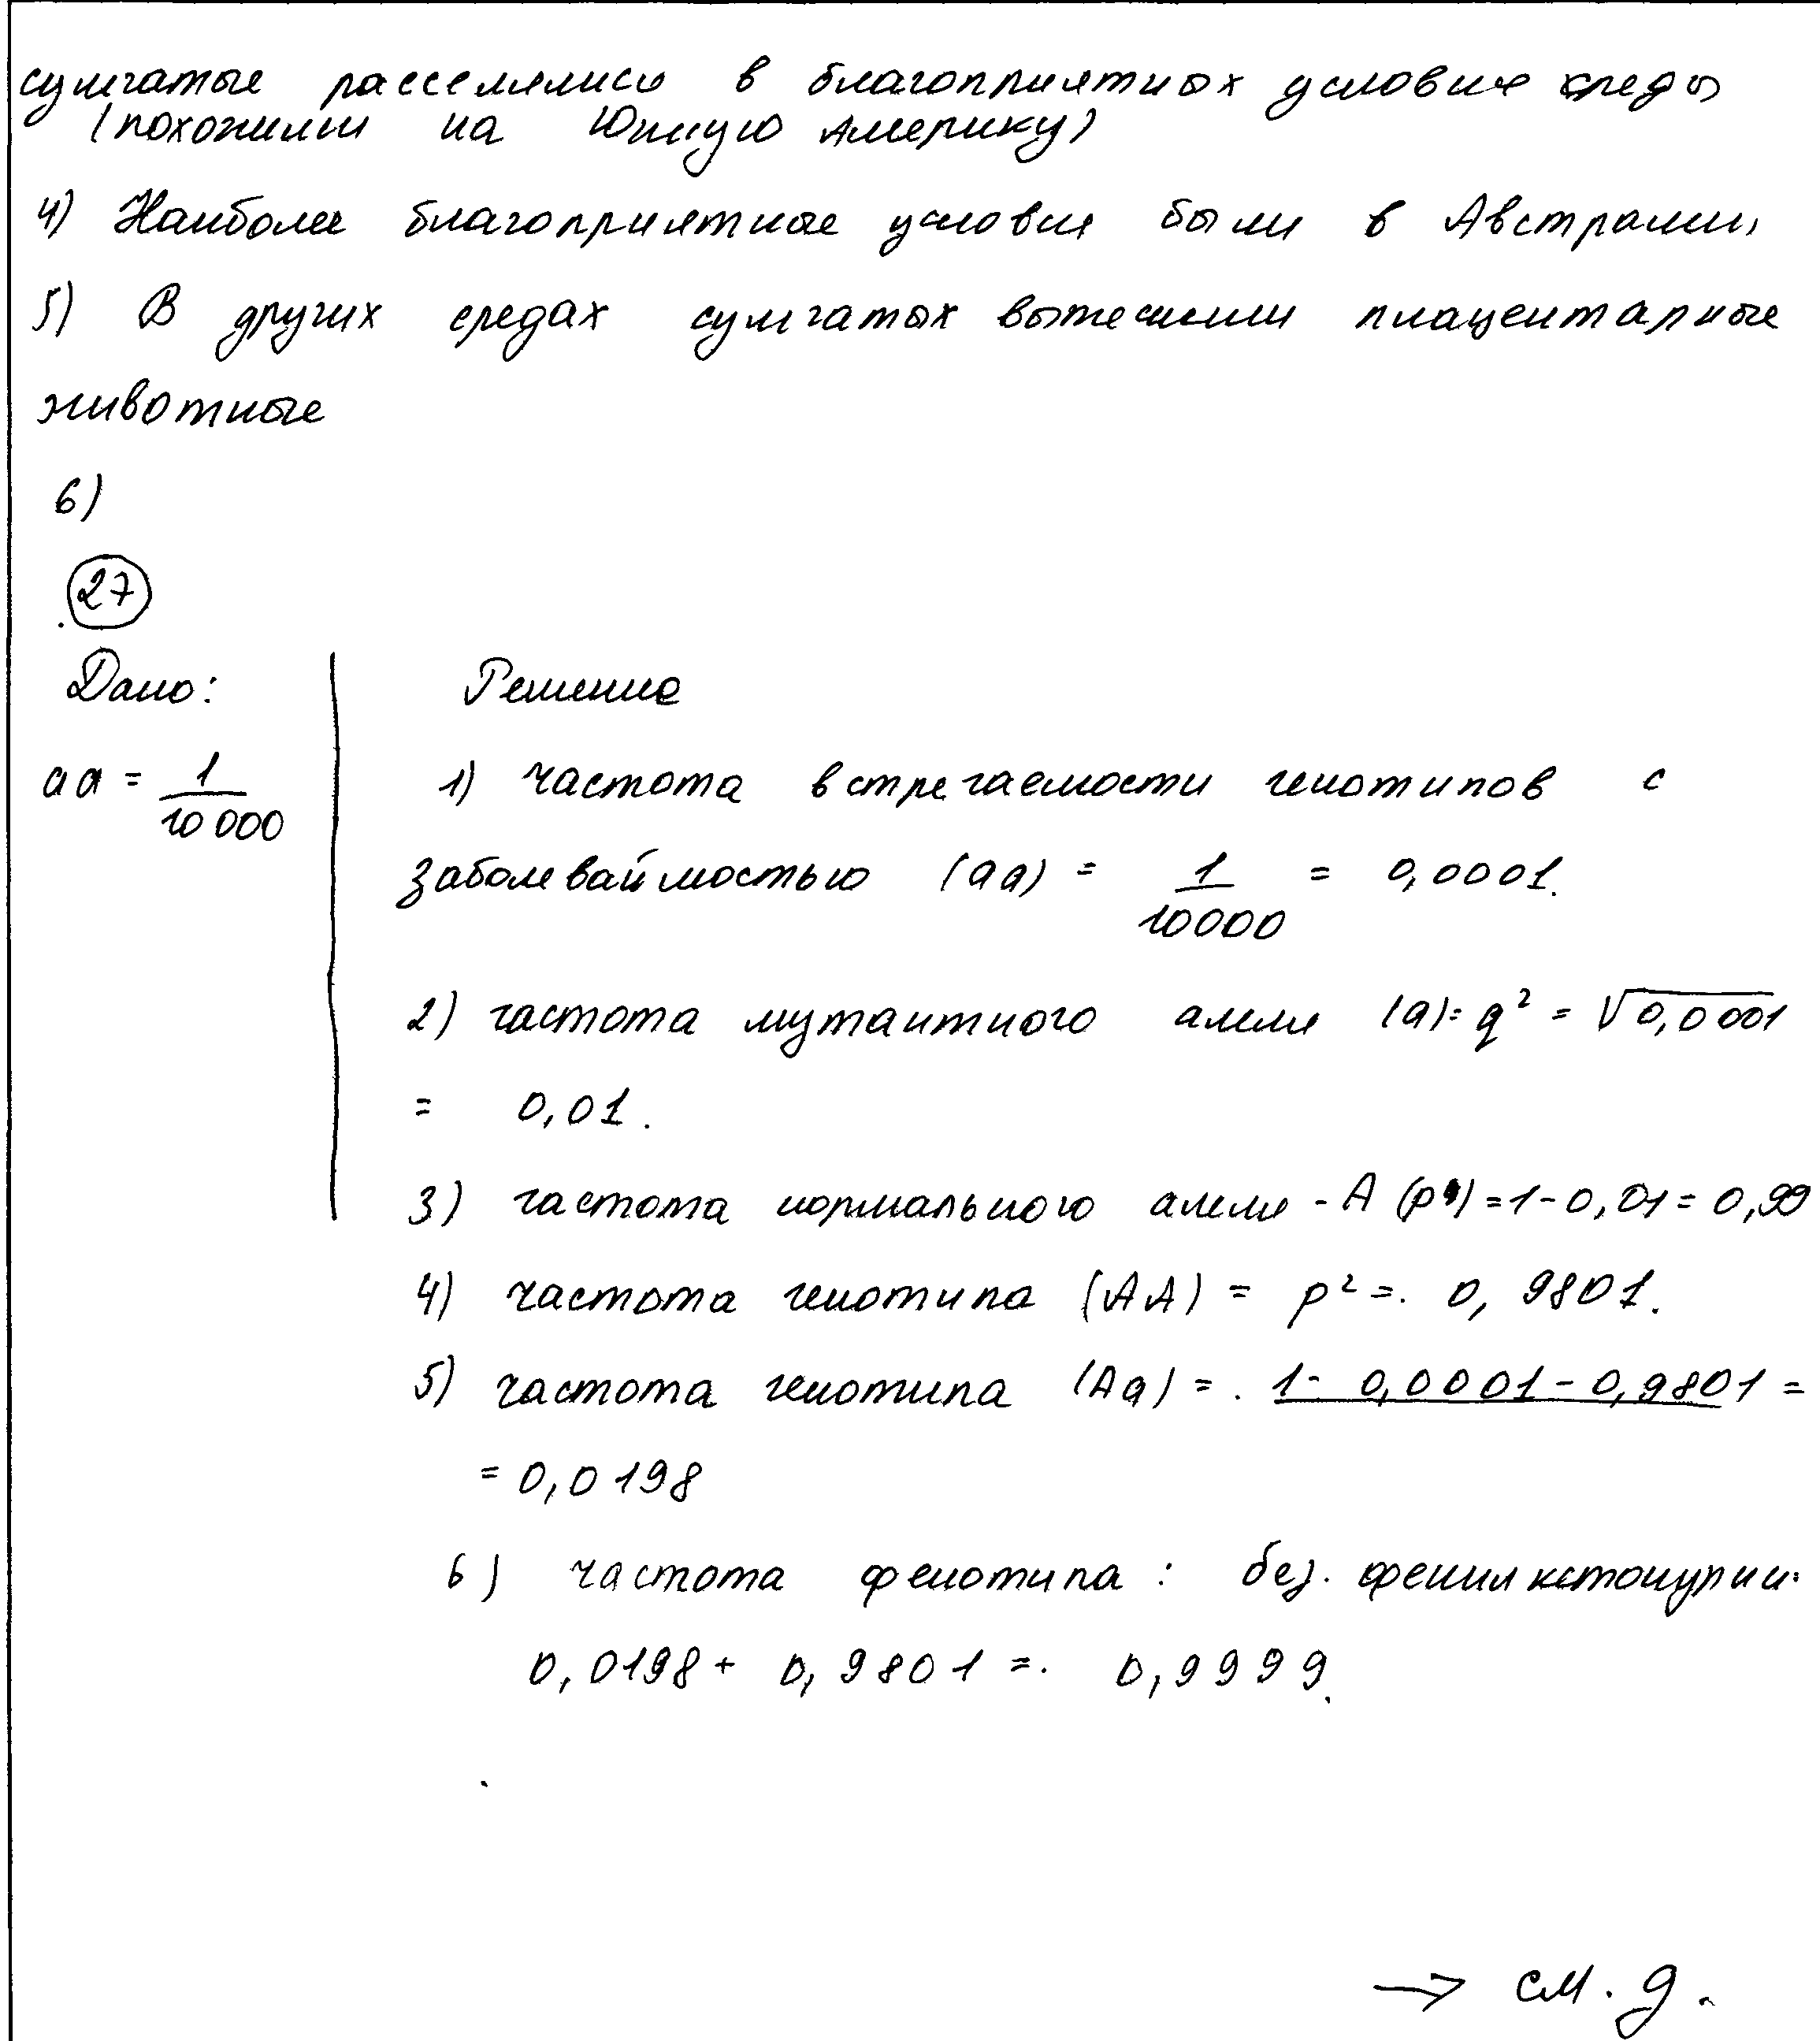 сумчатые расселялись в благоприятных условие среды
(похожими на Южную Америку)
4) Наиболее благоприятные условия были в Австралии,
5) В других средах сумчатых вытеснили плацентарные
животные
6)
27
Дано:
Решение
aa = 1/10 000
1) частота встречаемости генотипов с
заболеваймостью (aa) = 1/10000 = 0,0001.
2) частота мутантного алеля (a) = q² = √0,0001
= 0,01.
3) частота нормального алеля - A (p) = 1 - 0,01 = 0,99
4) частота генотипа (AA) = p² = . 0, 9801.
5) частота генотипа (Aa) = . 1 - 0,0001 - 0,9801 =
= 0,0198
6) частота фенотипа : без. фенилкетонурии:
0,0198 + 0,9801 = . 0,9999.
→ см. д.